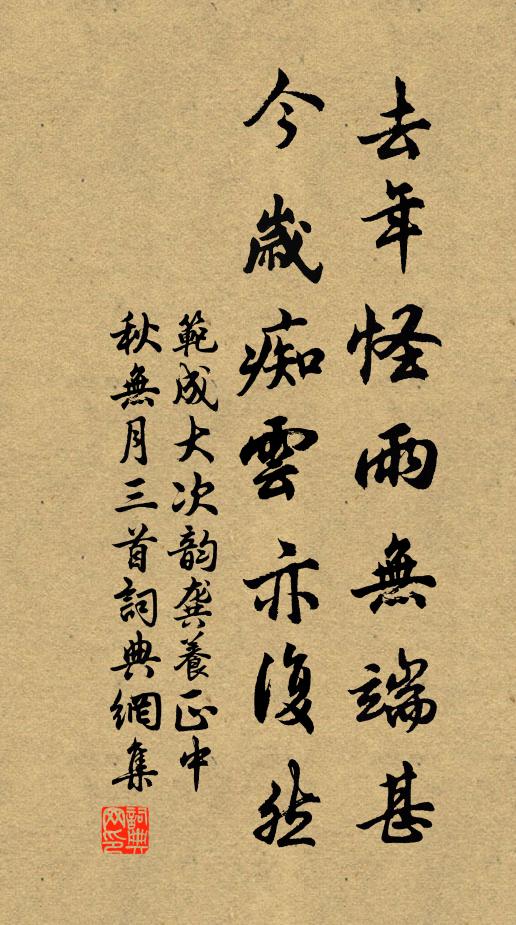 去年怪雨無端甚
今歲痴雲亦復然
範成大次韵龔養正中
秋無月三首詞典網集
詞典
网印